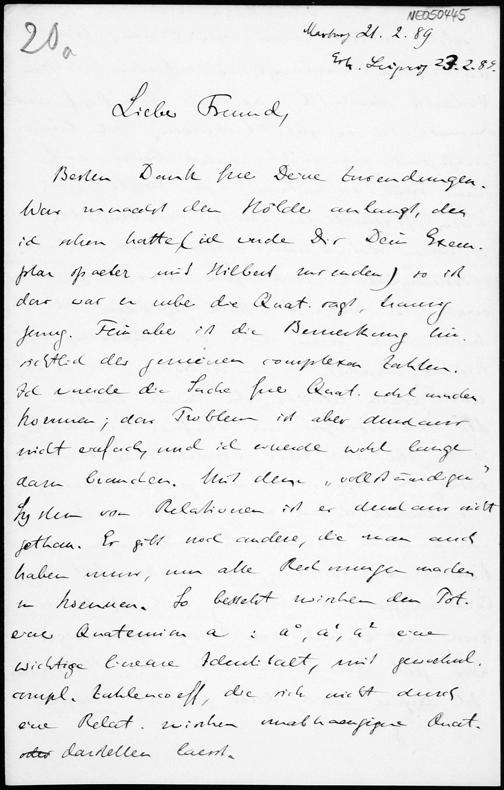 NE050445
20a
Marburg 21. 2. 89
Erh. Leipzig 23. 2. 89.
Lieber Freund,
Besten Dank fuer Deine Zusendungen.
Was zunaechst den Hölder anlangt, den
ich schon hatte (ich werde Dir Dein Exem-
plar spaeter mit Hilbert zusenden) so ist
das was er ueber die Quat. sagt, traurig
genug. Fein aber ist die Bemerkung hin-
sichtlich der gemeinen complexen Zahlen.
Ich wuerde die Sache fuer Quat. wohl machen
koennen; das Problem ist aber durchaus
nicht einfach, und ich wuerde wohl lange
dazu brauchen. Mit dem „vollständigen"
System von Relationen ist es durchaus nicht
gethan. Es gibt noch andere, die man auch
haben muss, um alle Rechnungen machen
zu koennen. So besteht zwischen den Pot.
einer Quaternion a : a⁰, a¹, a² eine
wichtige lineare Identitaet, mit gewoehnl.
compl. Zahlencoeff., die sich nicht durch
eine Relat. zwischen unabhaengigen Quat.
darstellen laesst.